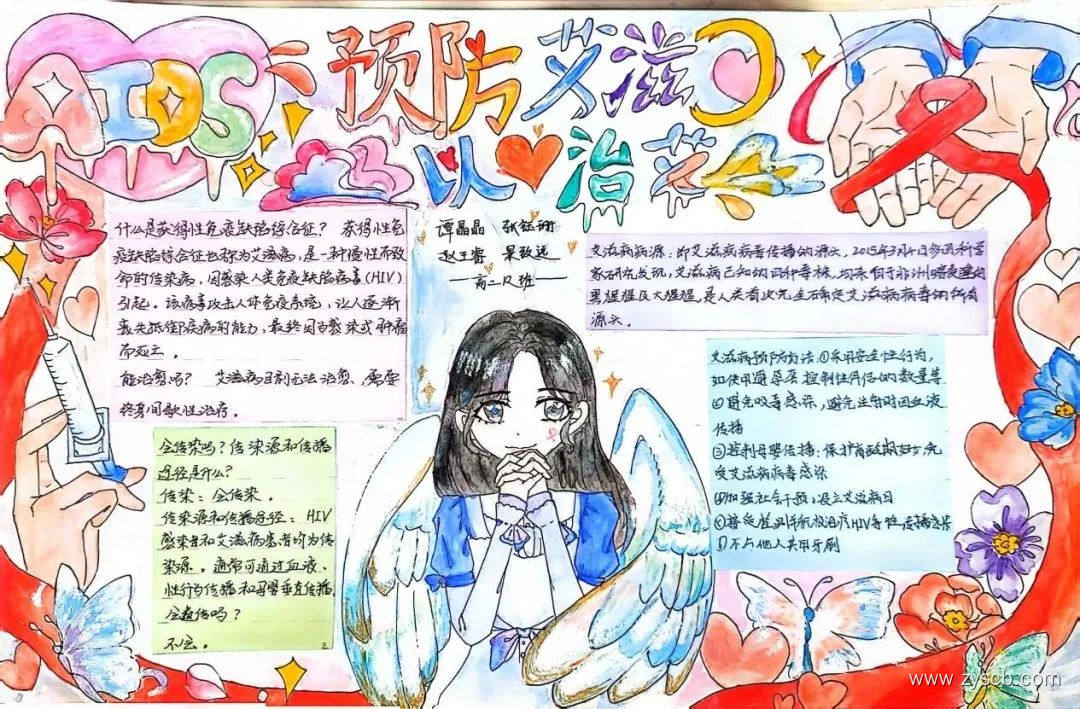 AIDS
预防艾滋
以 治 艾
什么是获得性免疫缺陷综合征? 获得性免
疫缺陷综合征也称为艾滋病,是一种慢性而致
命的传染病,因感染人类免疫缺陷病毒(HIV)
引起。该病毒攻击人体免疫系统,让人逐渐
丧失抵御疾病的能力,最终因为感染或肿瘤
而死亡。
能治愈吗? 艾滋病目前无法治愈、需要
终身间歇性治疗。
谭晶晶
高二 班
艾滋病病源:即艾滋病病毒传播的源头,2015年3月 日多国科学
家研究发现,艾滋病已知的四种毒株,均来自于非洲喀麦隆的
黑猩猩及大猩猩,是人类首次完全确定艾滋病病毒的所有
源头。
会传染吗?传染源和传播
途径是什么?
传染:会传染。
传染源和传播途径:HIV
感染者和艾滋病患者均为传
染源。通常可通过血液、
性行为传播和母婴垂直传播
会遗传吗?
不会。
艾滋病预防方法:①采用安全性行为,
如使用避孕套 控制性伴侣的数量等
②避免吸毒感染,避免注射时因血液
传播
③控制母婴传播:保护育龄期妇女免
受艾滋病病毒感染
④加强社会干预,设立艾滋病日
⑤接受检测并积极治疗HIV等性传播疾病
不与他人共用牙刷
www.zyscb.com